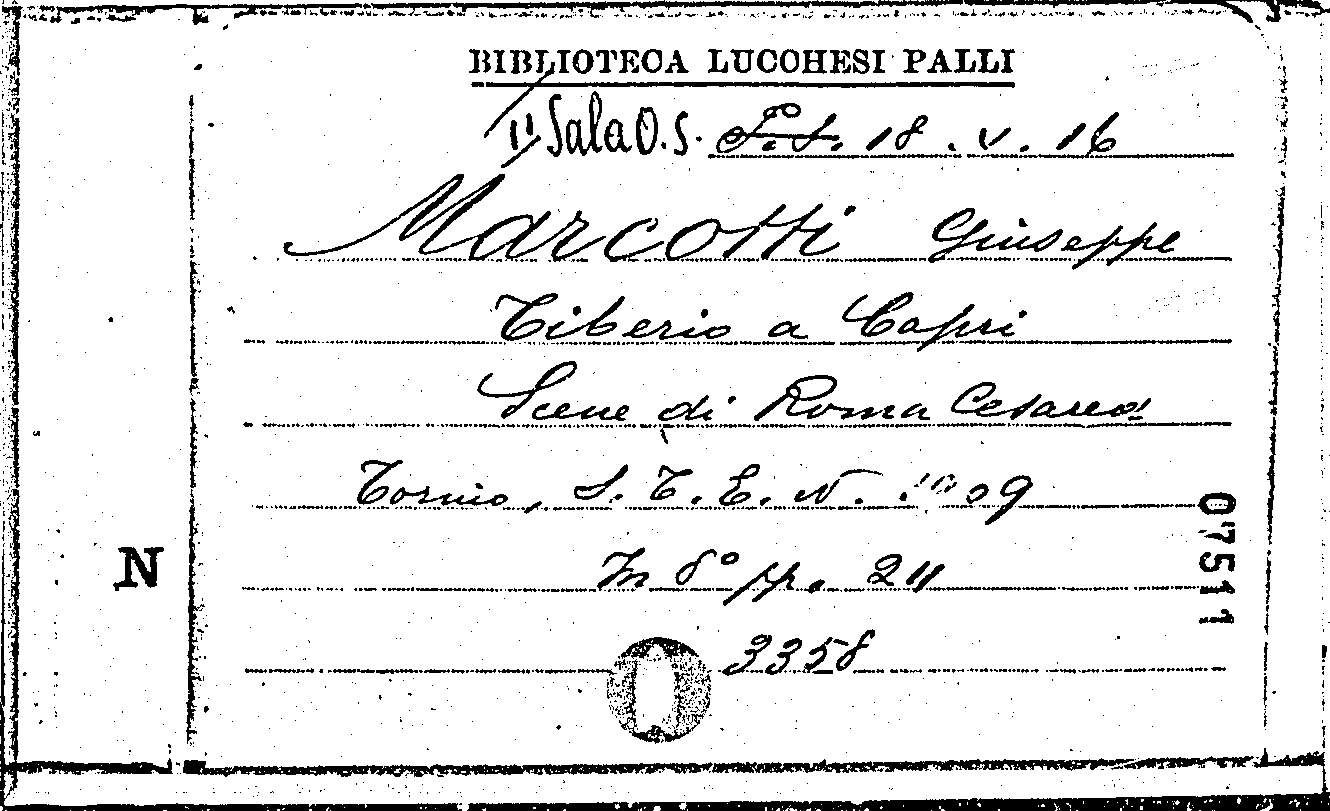 BIBLIOTECA LUCCHESI PALLI
1ª Sala O.S. 18.V.16
Marcotti Giuseppe
Tiberio a Capri
Scene di Roma Cesarea
Torino, S.T.E.N. 1909
In 8º pp. 211
3358
N
07511